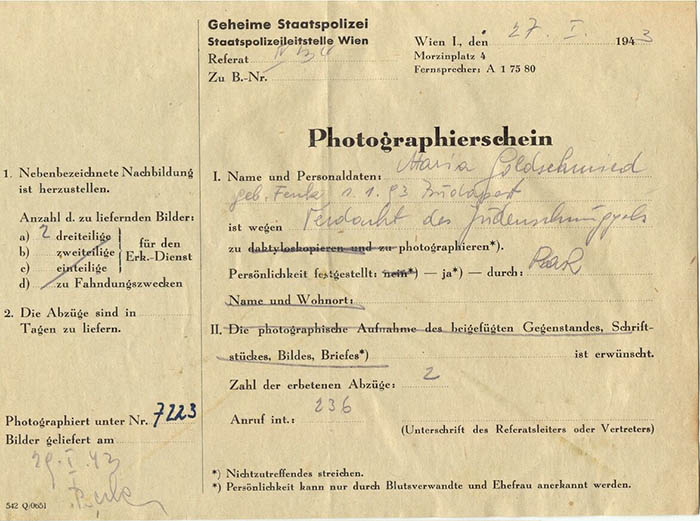 Geheime Staatspolizei
Staatspolizeileitstelle Wien
Referat
Zu B.-Nr.
Wien I., den 27. I. 1943
Morzinplatz 4
Fernsprecher: A 1 75 80
Photographierschein
1. Nebenbezeichnete Nachbildung
ist herzustellen.
Anzahl d. zu liefernden Bilder:
a) 2 dreiteilige
b) zweiteilige
c) einteilige
für den
Erk.-Dienst
d) zu Fahndungszwecken
2. Die Abzüge sind in
Tagen zu liefern.
Photographiert unter Nr. 7223
Bilder geliefert am
29. I. 43
I. Name und Personaldaten: Maria Goldschmied
geb. 1.1.93 Budapest
ist wegen Verdacht des Judenschmuggels
zu daktyloskopieren und zu photographieren*).
Persönlichkeit festgestellt: nein*) — ja*) — durch:
Name und Wohnort:
II. Die photographische Aufnahme des beigefügten Gegenstandes, Schrift-
stückes, Bildes, Briefes*) ist erwünscht.
Zahl der erbetenen Abzüge: 2
Anruf int.: 236
(Unterschrift des Referatsleiters oder Vertreters)
*) Nichtzutreffendes streichen.
*) Persönlichkeit kann nur durch Blutsverwandte und Ehefrau anerkannt werden.
542 Q/0651